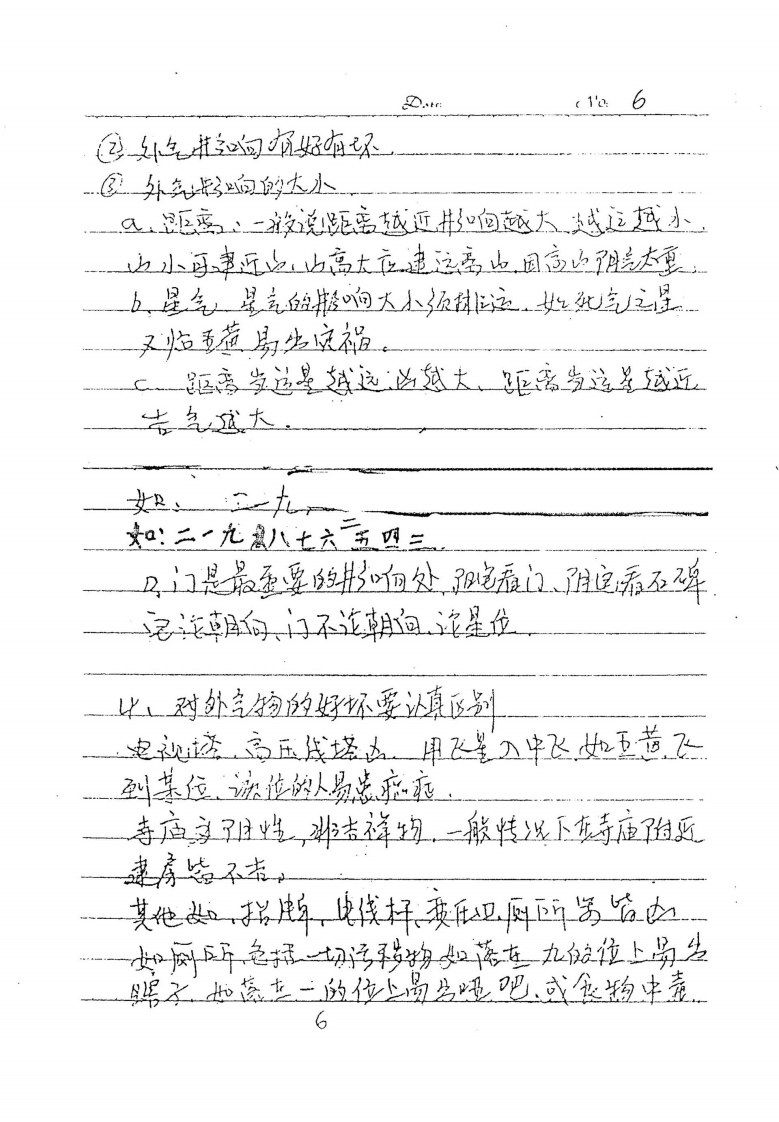 Date No. 6
② 外气影响有好有坏
③ 外气影响的大小
a、距离、一般说距离越近影响越大 越远越小.
山小可建近山、山高大应建远离山.因高山阴气太重.
b. 星气 星气的影响大小须排运. 如死气之星
又临五黄 易出灾祸。
c. 距离当运星越远凶越大、距离当运星越近
吉气越大.
如: 二一九
如:二一九 八七六 五四三 二
D、门是最重要的影响处、阳宅看门、阴宅看石碑
宅论朝向、门不论朝向、论星位.
4、对外气物的好坏要认真区别
电视塔、高压线塔凶. 用飞星入中飞.如五黄飞
到某位、该位的人易患癌症.
寺庙主阴性,非吉祥物.一般情况下在寺庙附近
建房皆不吉。
其他如、招牌、电线杆、变压四、厕所等皆凶
如厕所包括一切污秽物如落在九的位上易出
瞎子、如落在一的位上易出哑吧、或食物中毒.
6